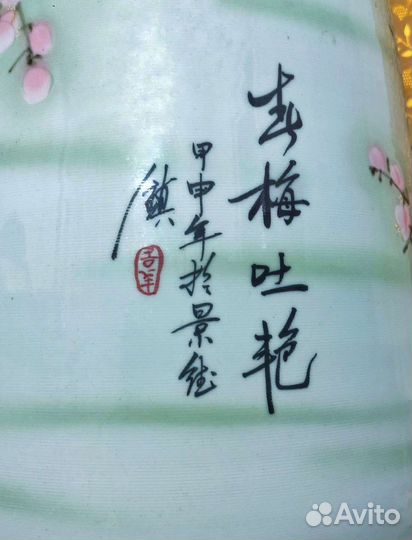 春梅吐艳
甲申年於景德
鎮
Avito